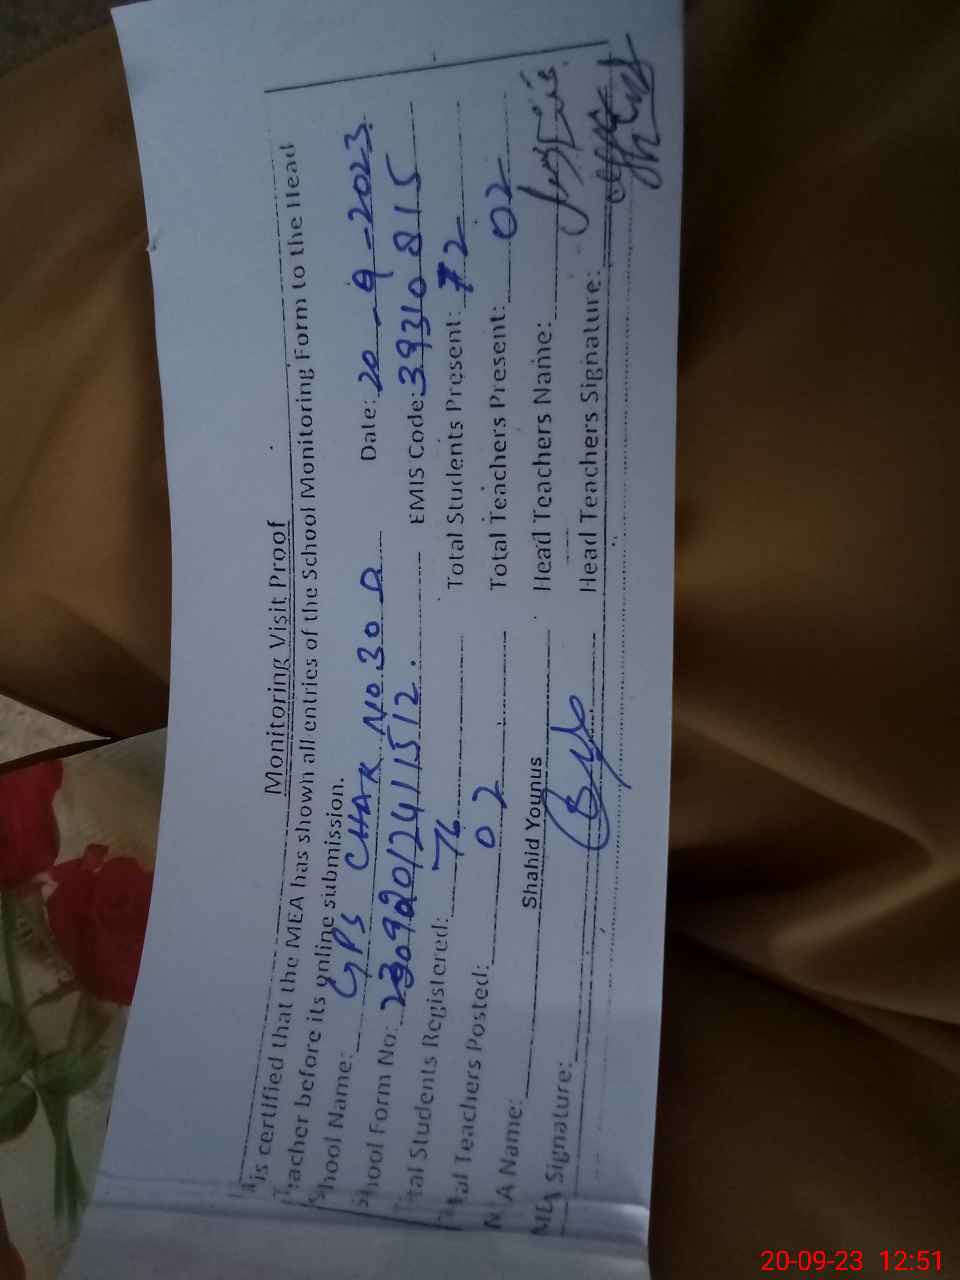 Monitoring Visit Proof
is certified that the MEA has shown all entries of the School Monitoring Form to the Head
Teacher before its online submission.
School Name: GPS CHAK NO 30 D Date: 20-9-2023
School Form No: 23092012411512. EMIS Code: 39310815
Total Students Registered: 76 Total Students Present: 72
Total Teachers Posted: 02 Total Teachers Present: 02
MEA Name: Shahid Younus Head Teachers Name:
MEA Signature: Head Teachers Signature:
20-09-23 12:51